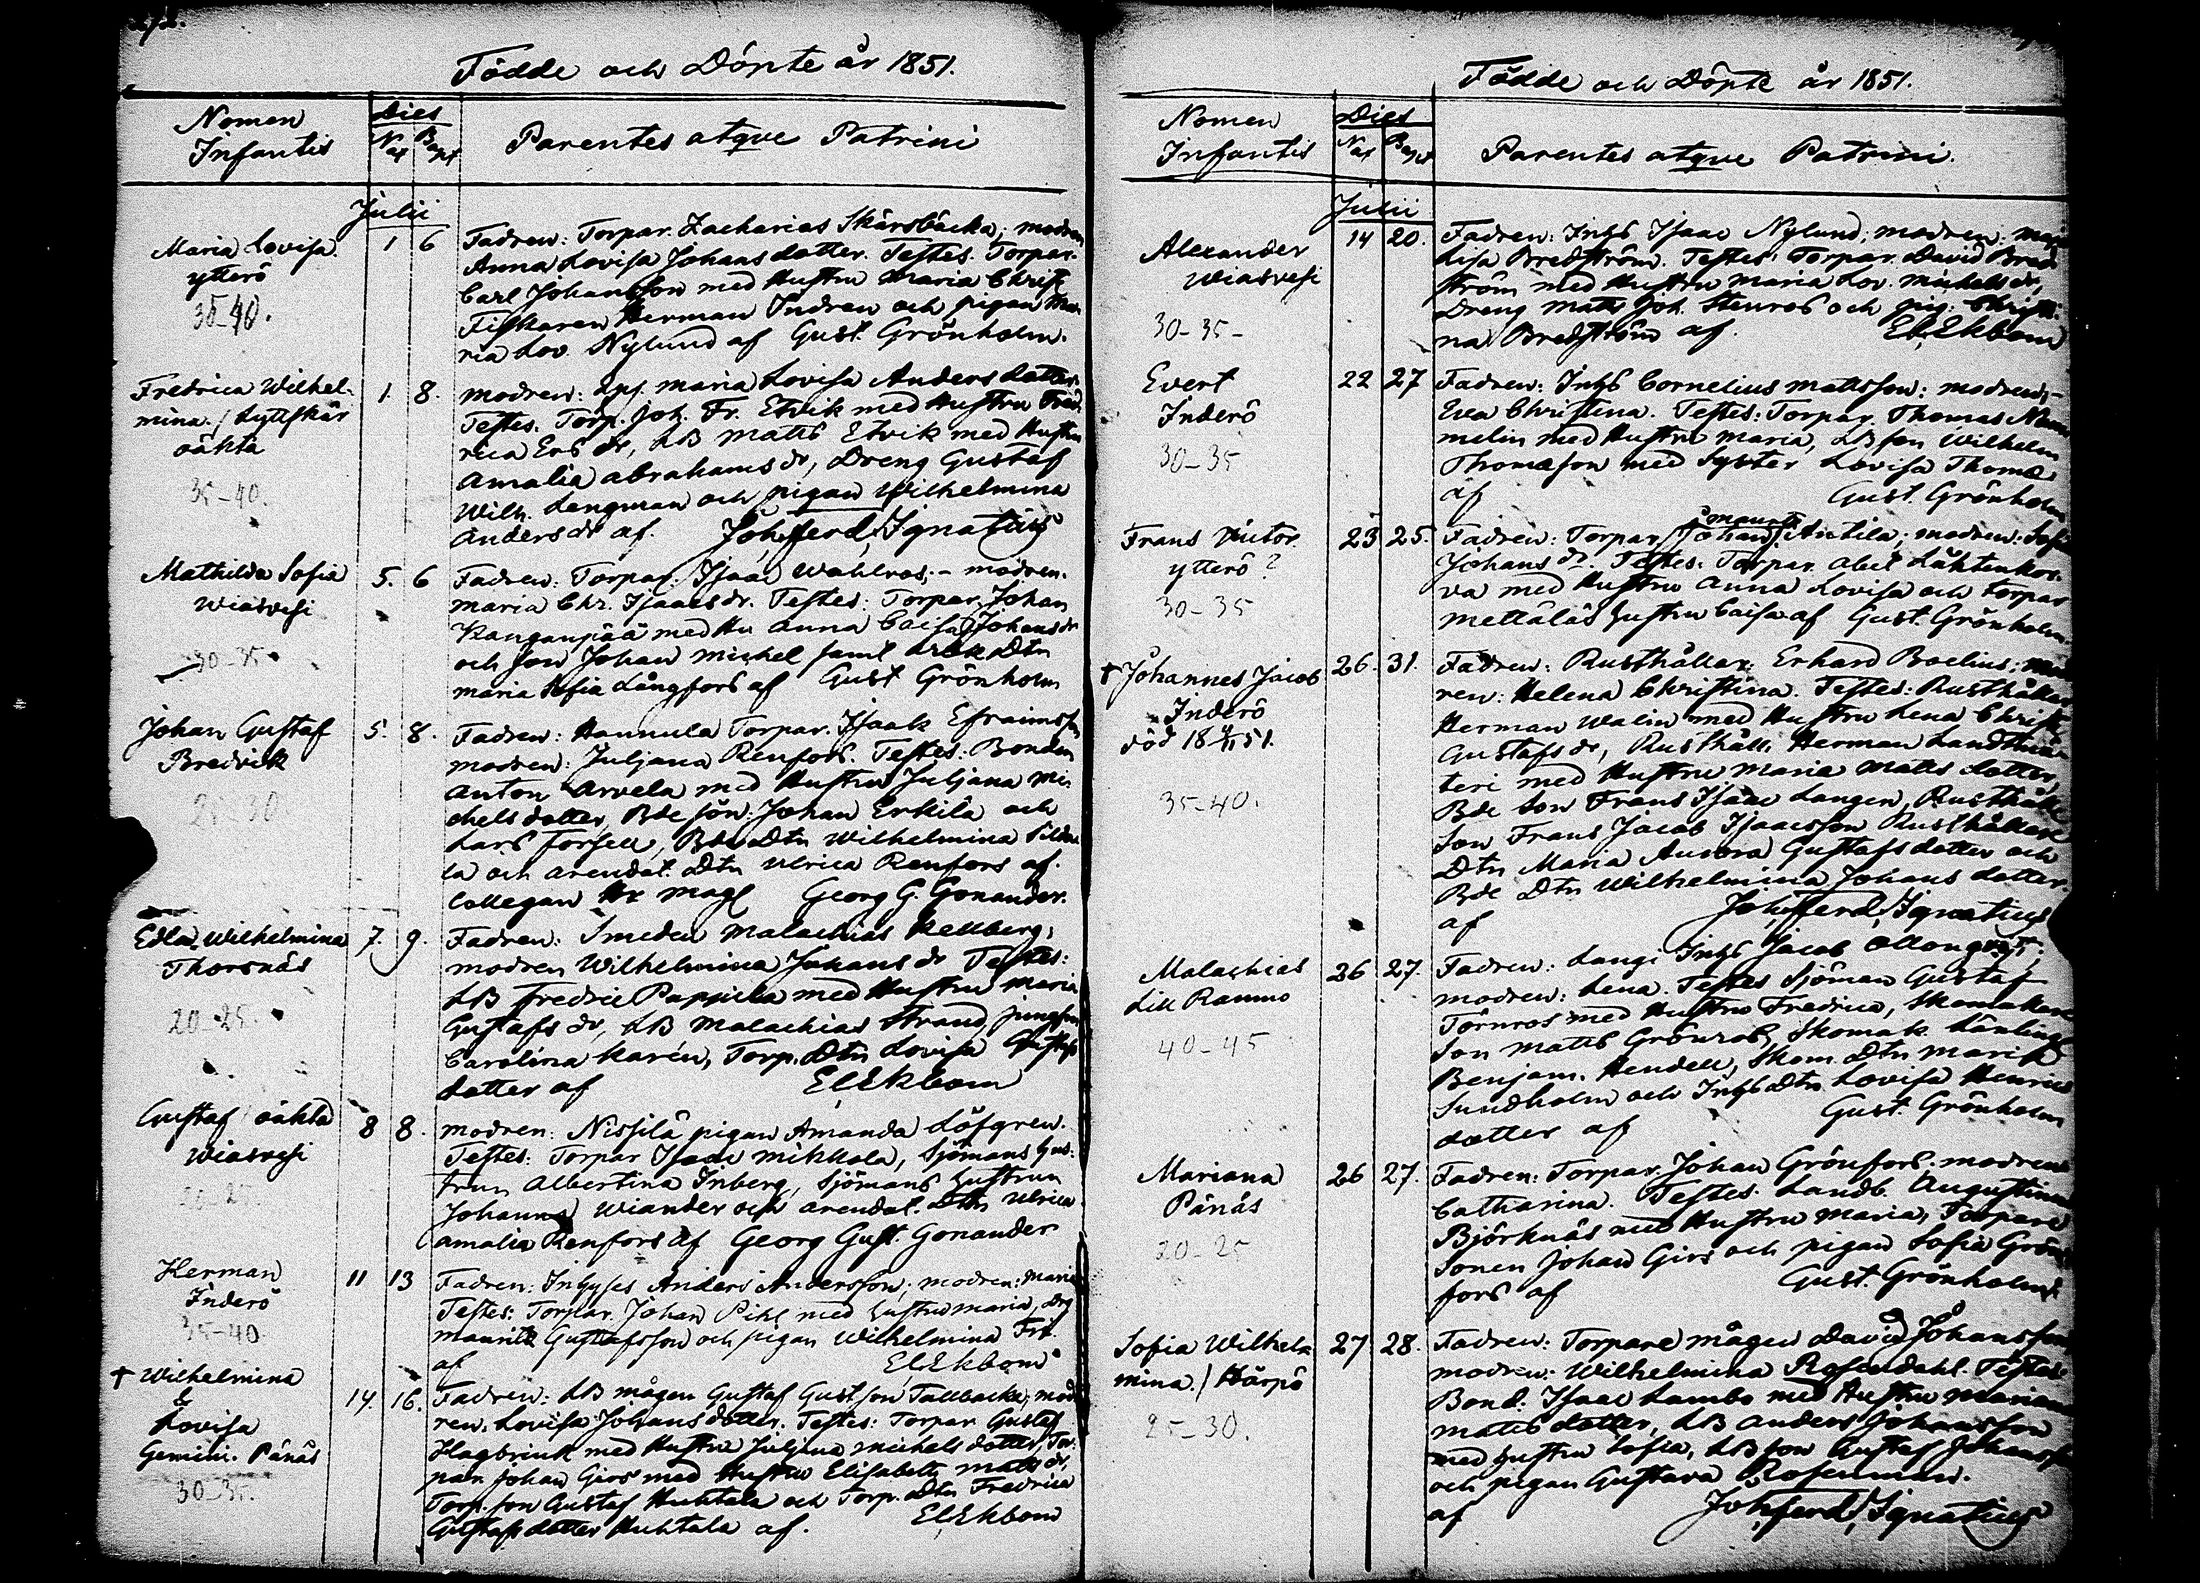 Födde och Döpte år 1851.
Nomen Infantis
Dies
Nat Bapt
Parentes atque Patrini
Julii
Maria Lovisa
ytterö
35-40.
1 6
Fadren: Torpar. Zacharias Skärsbäcka; modren
Anna Lovisa Johansdotter. Testes. Torpar.
Carl Johansson med Hustru Maria Christ
Fiskaren Herman Indren och pigan Ma
ria Lov. Nylund af Gust. Grönholm.
Fredrica Wilhel-
mina. / Lyttskär
oäkta
35-40.
1. 8.
modren: Maria Lovisa Andersdotter.
Testes. Torp. Joh. Fr. Etvik med Hustru Fred
rica Ers dr, LB Matts Etvik med Hustru
Amalia Abrahams dr, Dreng Gustaf
Wilh. Lengman och pigan Wilhelmina
Anders dr af. Joh. Ferd. Ignatius
Mathilda Sofia
Wiasvesi
30-35
5. 6
Fadren: Torpar. Isaac Wahlros; - modren.
Maria Chr. Isaacs dr. Testes: Torpar. Johan
Kanganpää med Hu Anna Caisa Johans dr
och son Johan Michel samt Dtn
Maria Sofia Långfors af Gust Grönholm
Johan Gustaf
Bredvik
25-30
5. 8.
Fadren: Hannula Torpar. Isaak Efraimss
modren: Juljana Renfors. Testes: Bonden
Anton Arvela med Hustru Juljana Mi
chelsdotter, Bde sön: Johan Erkilä och
Lars Forsell, Bde Dtn Wilhelmina
la och arendat. Dtn Ulrica Renfors af.
Collegan Hr Mag Georg G. Gonander.
Edla Wilhelmina
Thorsnäs
20-25.
7. 9.
Fadren: Smeden Malachias Hellberg,
modren Wilhelmina Johans dr Testes:
LB Fredric Pappila med Hustru Maria
Gustafs dr, LB Malachias Strand jungfru
Carolina Karén, Torp. Dtn Lovisa Gustafs
dotter af El. Ekbom
Gustaf / oäkta
Wiasvesi
20-25
8 8.
modren: Nissilä pigan Amanda Löfgren.
Testes: Torpar Isaac Mikkola, Sjömans Hus-
trun Albertina Inberg, Sjömans Hustrun
Johanna Wiander och arendat. Dtn Ulrica
Amalia Renfors af Georg Gust. Gonander
Herman
Inderö
35-40
11 13
Fadren: Inhyses Anders Andersson; modren: Maria
Testes: Torpar. Johan Pihl med Hustru Maria, drg
Maurits Gustafsson och pigan Wilhelmina Fr
af El. Ekbom
† Wilhelmina
&
Lovisa
Gemini. Pänäs
30-35.
14. 16.
Fadren: LB mågen Gustaf Gustsson Tallbacka; mod
ren. Lovisa Johansdotter. Testes: Torpar Gustaf
Hagbrink med Hustru Juljana Michelsdotter, Tor-
pan Johan Girs med Hustru Elisabeth Matts dr,
Torp. son Gustaf Huhtala och Torp. Dtn Fredrica
Gustafsdotter Huhtala af. El. Ekbom
Födde och Döpte år 1851.
Nomen Infantis
Dies
Nat Bapt
Parentes atque Patrini.
Julii
Alexander
Wiasvesi
30-35-
14 20.
Fadren: Inhs Isaac Nylund; modren. Maja
Lisa Bredström. Testes: Torpar. David Bred
ström med Hustru Maria Lov. Michels dr,
Dreng Matts Joh. Stenros och pig. Christi-
na Bredström af El. Ekbom
Evert
Inderö
30-35
22 27
Fadren: Inhs Cornelius Mattsson: modren: -
Eva Christina. Testes: Torpar. Thomas
melin med Hustru Maria, LB son Wilhelm
Thomasson med Syster Lovisa Thomæ
af Gust. Grönholm
Frans Victor
ytterö?
30-35
23 25.
Fadren: Torpar Johan Antila; modren: Sofia
Johans dr. Testes: Torpar. Abel Lähtenkor-
va med Hustru Anna Lovisa och torpar
Mettäläs Hustru Caisa af Gust. Grönholm.
† Johannes Jacob
Inderö
död 18 51.
35-40.
26. 31.
Fadren: Rusthållar: Erhard Boelius; mod
ren: Helena Christina. Testes: Rusthållar
Herman Walin med Hustru Lena Christ
Gustafs dr, Rusthåll. Herman
teri med Hustru Maria Mattsdotter,
Bde son Frans Isaac Langen, Rusthålla
Son Frans Jacob Isaacsson Rusthållare
Dtn Maria Aurora Gustafsdotter och
Bde Dtn Wilhelmina Johansdotter.
af Joh. Ferd. Ignatius
Malachias
Lill Raumo
40-45
26 27.
Fadren: Langi Inhs Jacob Ollonqvist;
modren: Lena. Testes Sjöman Gustaf
Törnros med Hustru Fredrica, Skomakare
Son Matts Grönros, Skomak. Lärling
Benjam. Hendell, Skom. Dtn Maria
Sundholm och Inhs Dtn Lovisa Henrics
dotter af Gust. Grönholm
Mariana
Pänäs
20-25
26 27.
Fadren: Torpar. Johan Grönfors; modren
Catharina. Testes. Landb. Augustinus
Björknäs med Hustru Maria, Torpare
Sonen Johan Girs och pigan Sofia Grön
fors af Gust. Grönholm.
Sofia Wilhel
mina. / Härpö
25-30.
27 28.
Fadren: Torpare mågen David Johansson
modren: Wilhelmina Rosendahl. Testes
Bond: Isaac Lambo med Hustru Mariana
Mattsdotter, LB Anders Johansson
med Hustru Sofia, LB son Gustaf Johanss
och pigan Gustava Rosenman.
af Joh. Ferd. Ignatius